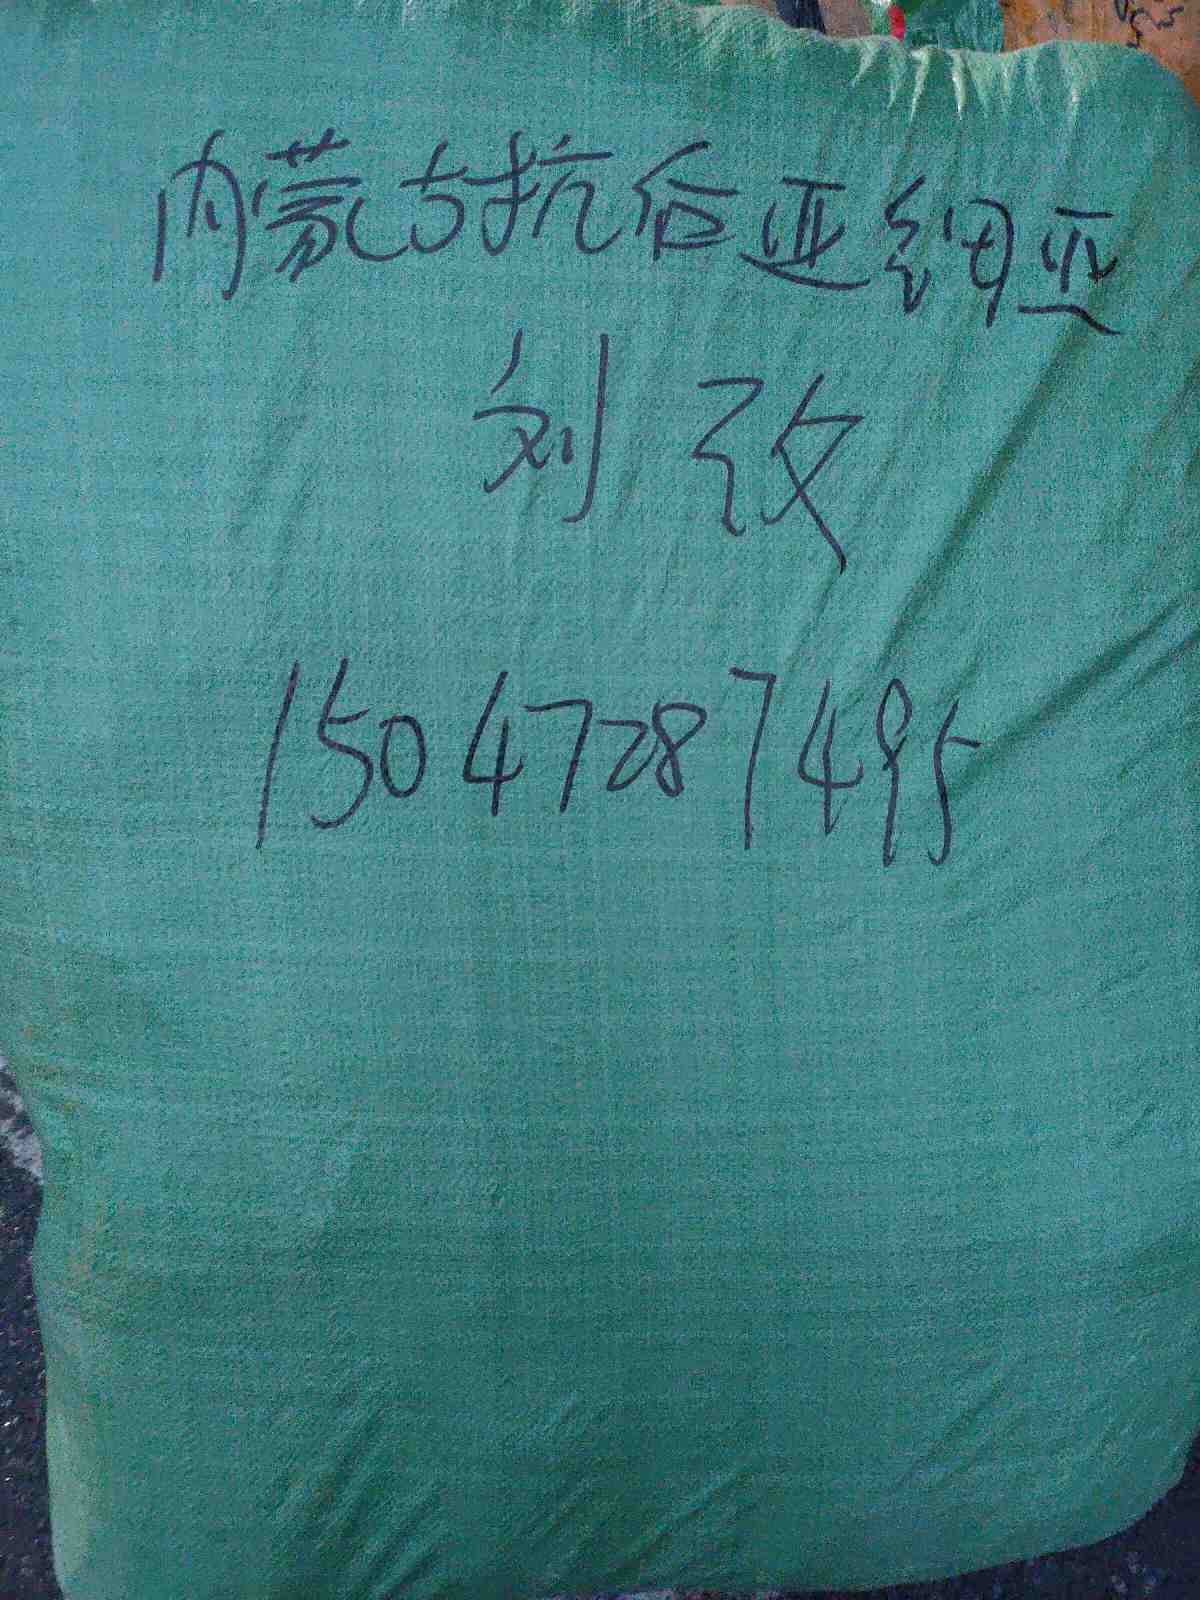 内蒙古抗后亚细亚
刘改
15047287495